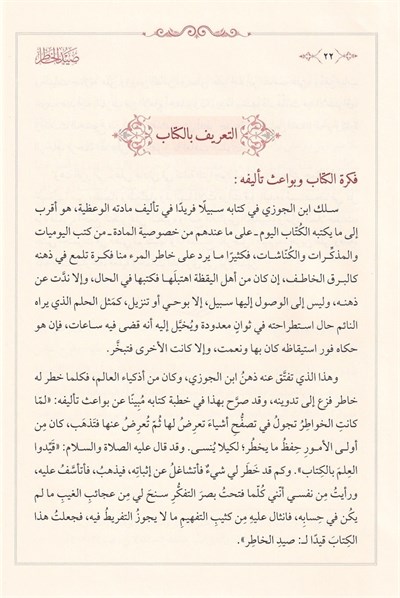 صَيْدُ الخَاطِر
٢٢
التعريف بالكتاب
فكرة الكتاب وبواعث تأليفه :
سـلك ابن الجوزي في كتابه سـبيلًا فريدًا في تأليف مادته الوعظية، هو أقرب
إلى ما يكتبه الكُتَّاب اليوم ـ على ما عندهم من خصوصية المادة ـ من كتب اليوميات
والمذكِّـرات والكُنَّاشات، فكثيرًا ما يـرد على خاطر المرء منا فكـرة تلمع في ذهنه
كالبرق الخاطـف، إن كان من أهل اليقظة اهتبلَهـا فكتبها في الحال، وإلا ندَّت عن
ذهنـه، وليس إلى الوصول إليها سـبيل، إلا بوحي أو تنزيل، كمَثل الحلم الذي يراه
النائم حال اسـتطراحته في ثوانٍ معدودة ويُخيَّل إليه أنه قضى فيه سـاعات، فإن هو
حكاه فور استيقاظه كان بها ونعمت، وإلا كانت الأخرى فتبخَّر.
وهـذا الذي تفتَّق عنه ذهنُ ابن الجوزي، وكان من أذكياء العالم، فكلما خطر له
خاطر فزع إلى تدوينه، وقد صرَّح بهذا في خطبة كتابه مُبينًا عن بواعث تأليفه: «لمّا
كانتِ الخواطِرُ تجولُ في تصفُّحِ أشياءَ تعرِضُ لها ثُمَّ تُعرِضُ عنها فتَذهَب، كان مِن
أولـى الأمـورِ حِفظُ ما يخطُر؛ لكيلا يُنسـى. وقد قال عليه الصلاة والسـلام: «قَيِّدوا
العِلمَ بالكِتاب». وكم قد خَطَر لي شيءٌ فأتشاغلُ عن إثباتِه، فيذهبُ، فأتأسَّفُ عليه،
ورأيتُ مِن نفسـي أنَّني كُلَّما فتحتُ بصرَ التفكُّرِ سنحَ لي مِن عجائبِ الغيبِ ما لم
يكُن في حِسابِه، فانثال عليهِ مِن كثيبِ التفهيمِ ما لا يجوزُ التفريطُ فيه، فجعلتُ هذا
الكِتابَ قيدًا لـ: صيدِ الخاطِر».